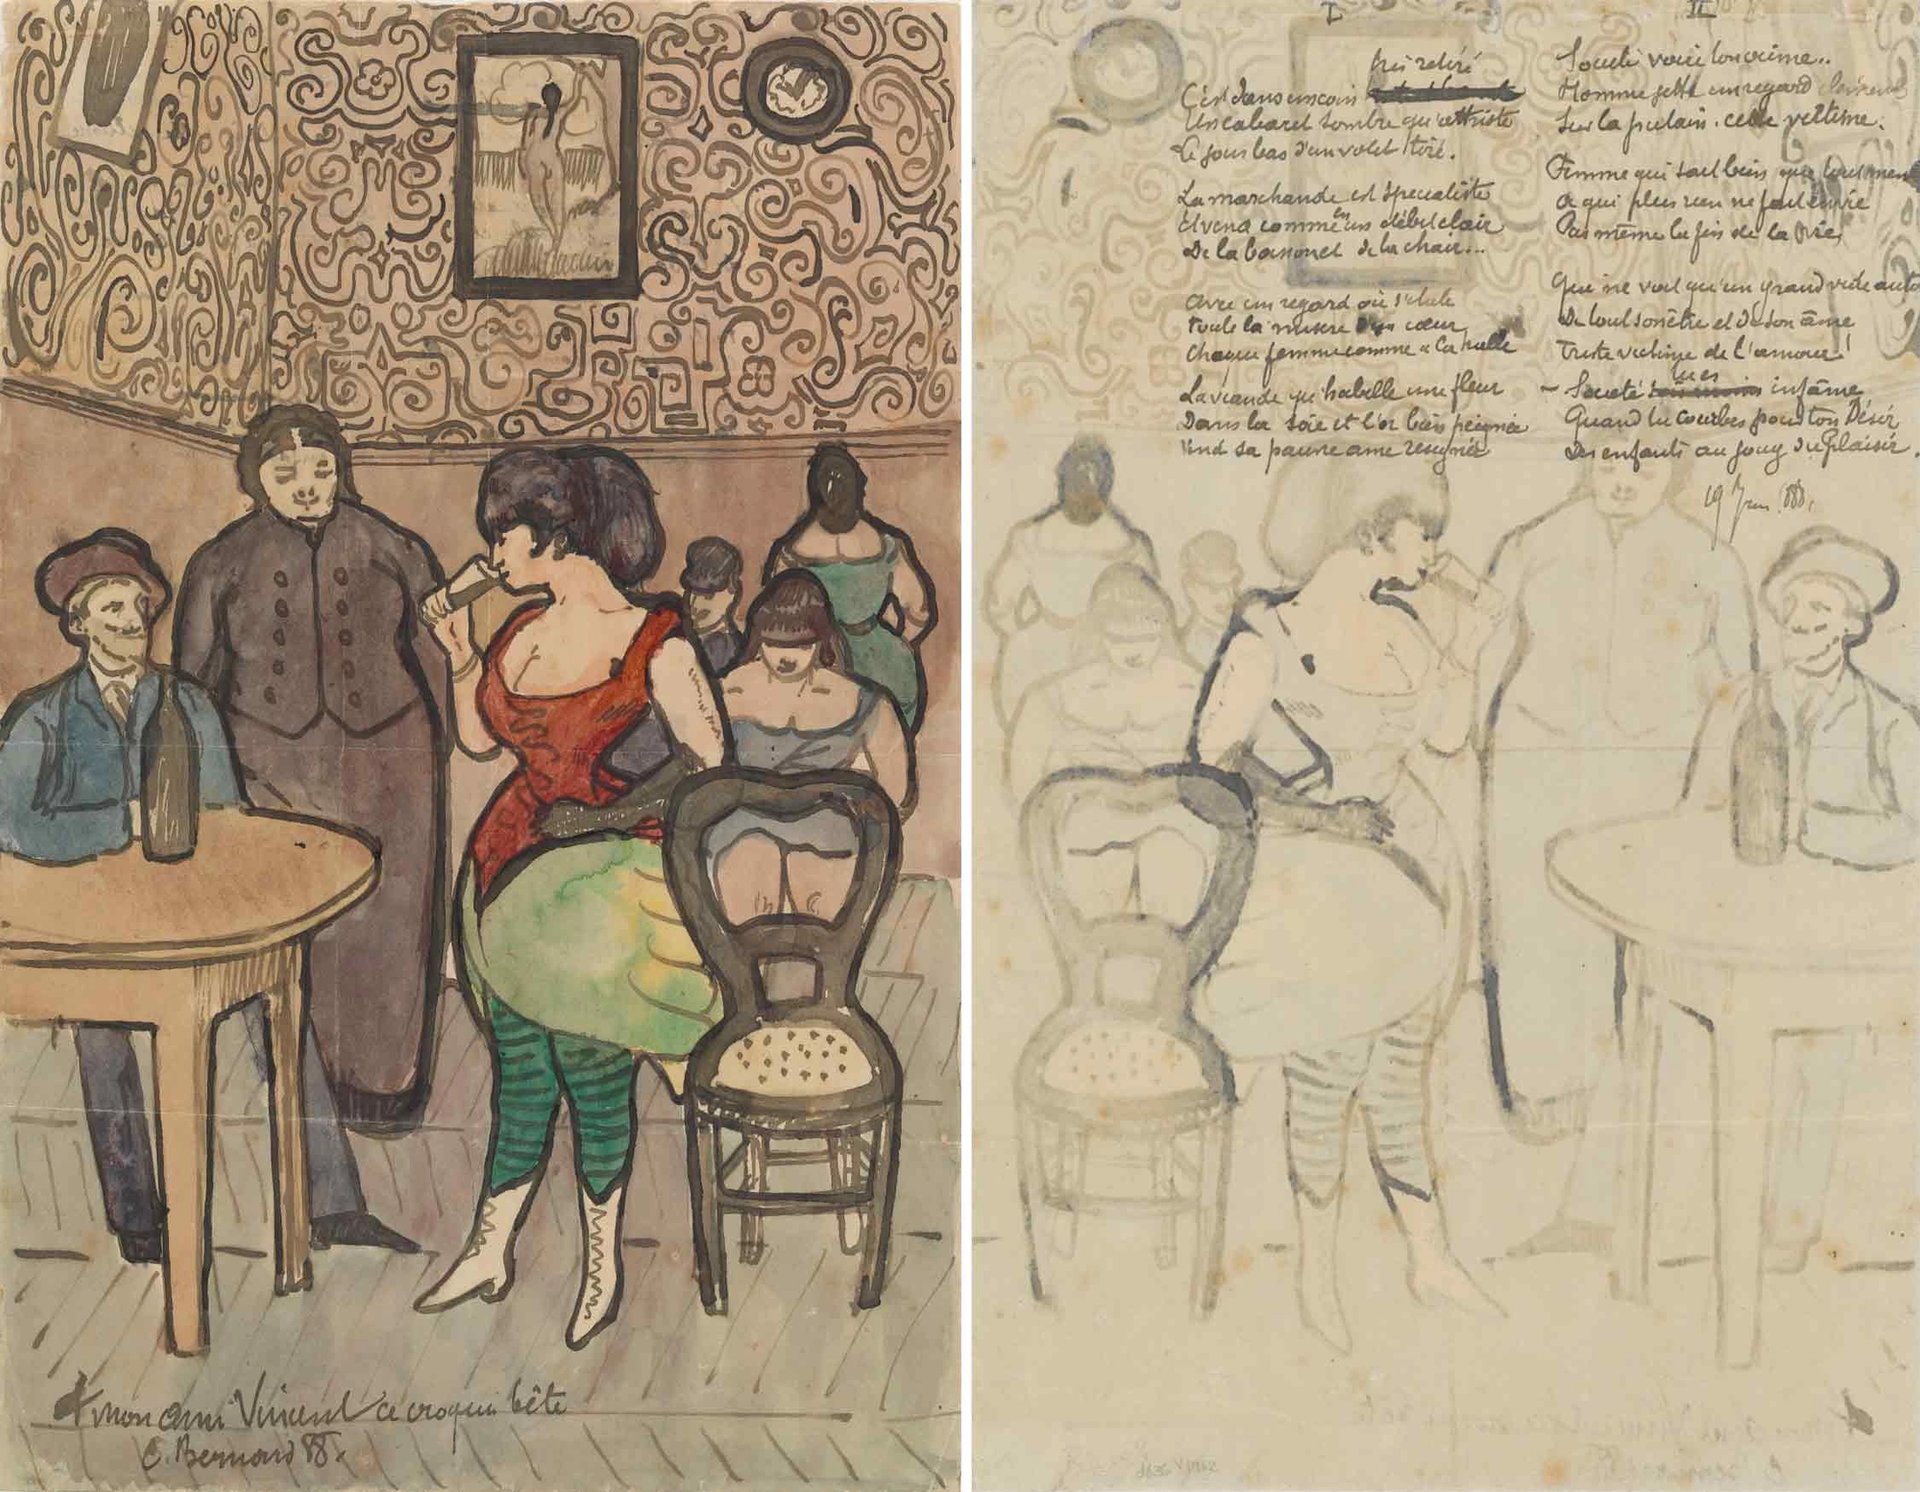 A mon ami Vincent ce croquis bête
E. Bernard 88.
I
très retiré
C'est dans un coin
Un cabaret sombre qu'attriste
Le jour bas d'un volet tiré.
La marchande est specialiste
Et vend comme en un débit clair
De la boisson et de la chair...
Avec un regard où s'étale
toute la misère d'un cœur
Chaque femme comme
La viande qu'habille une fleur
Dans la soie et l'or bien peignée
Vend sa pauvre ame resignée
II
Société voici ton crime..
Homme jette un regard clément
Sur la putain. cette victime.
Femme qui sait bien que tout ment
A qui plus rien ne fait envie
Pas même la fin de la vie,
Qui ne voit qu'un grand vide
De tout son être et de son âme
Triste victime de l'amour!
- Société infâme
Quand tu courbes pour ton Désir
Des enfants au joug du Plaisir.
19 Juin 888.
V/1962